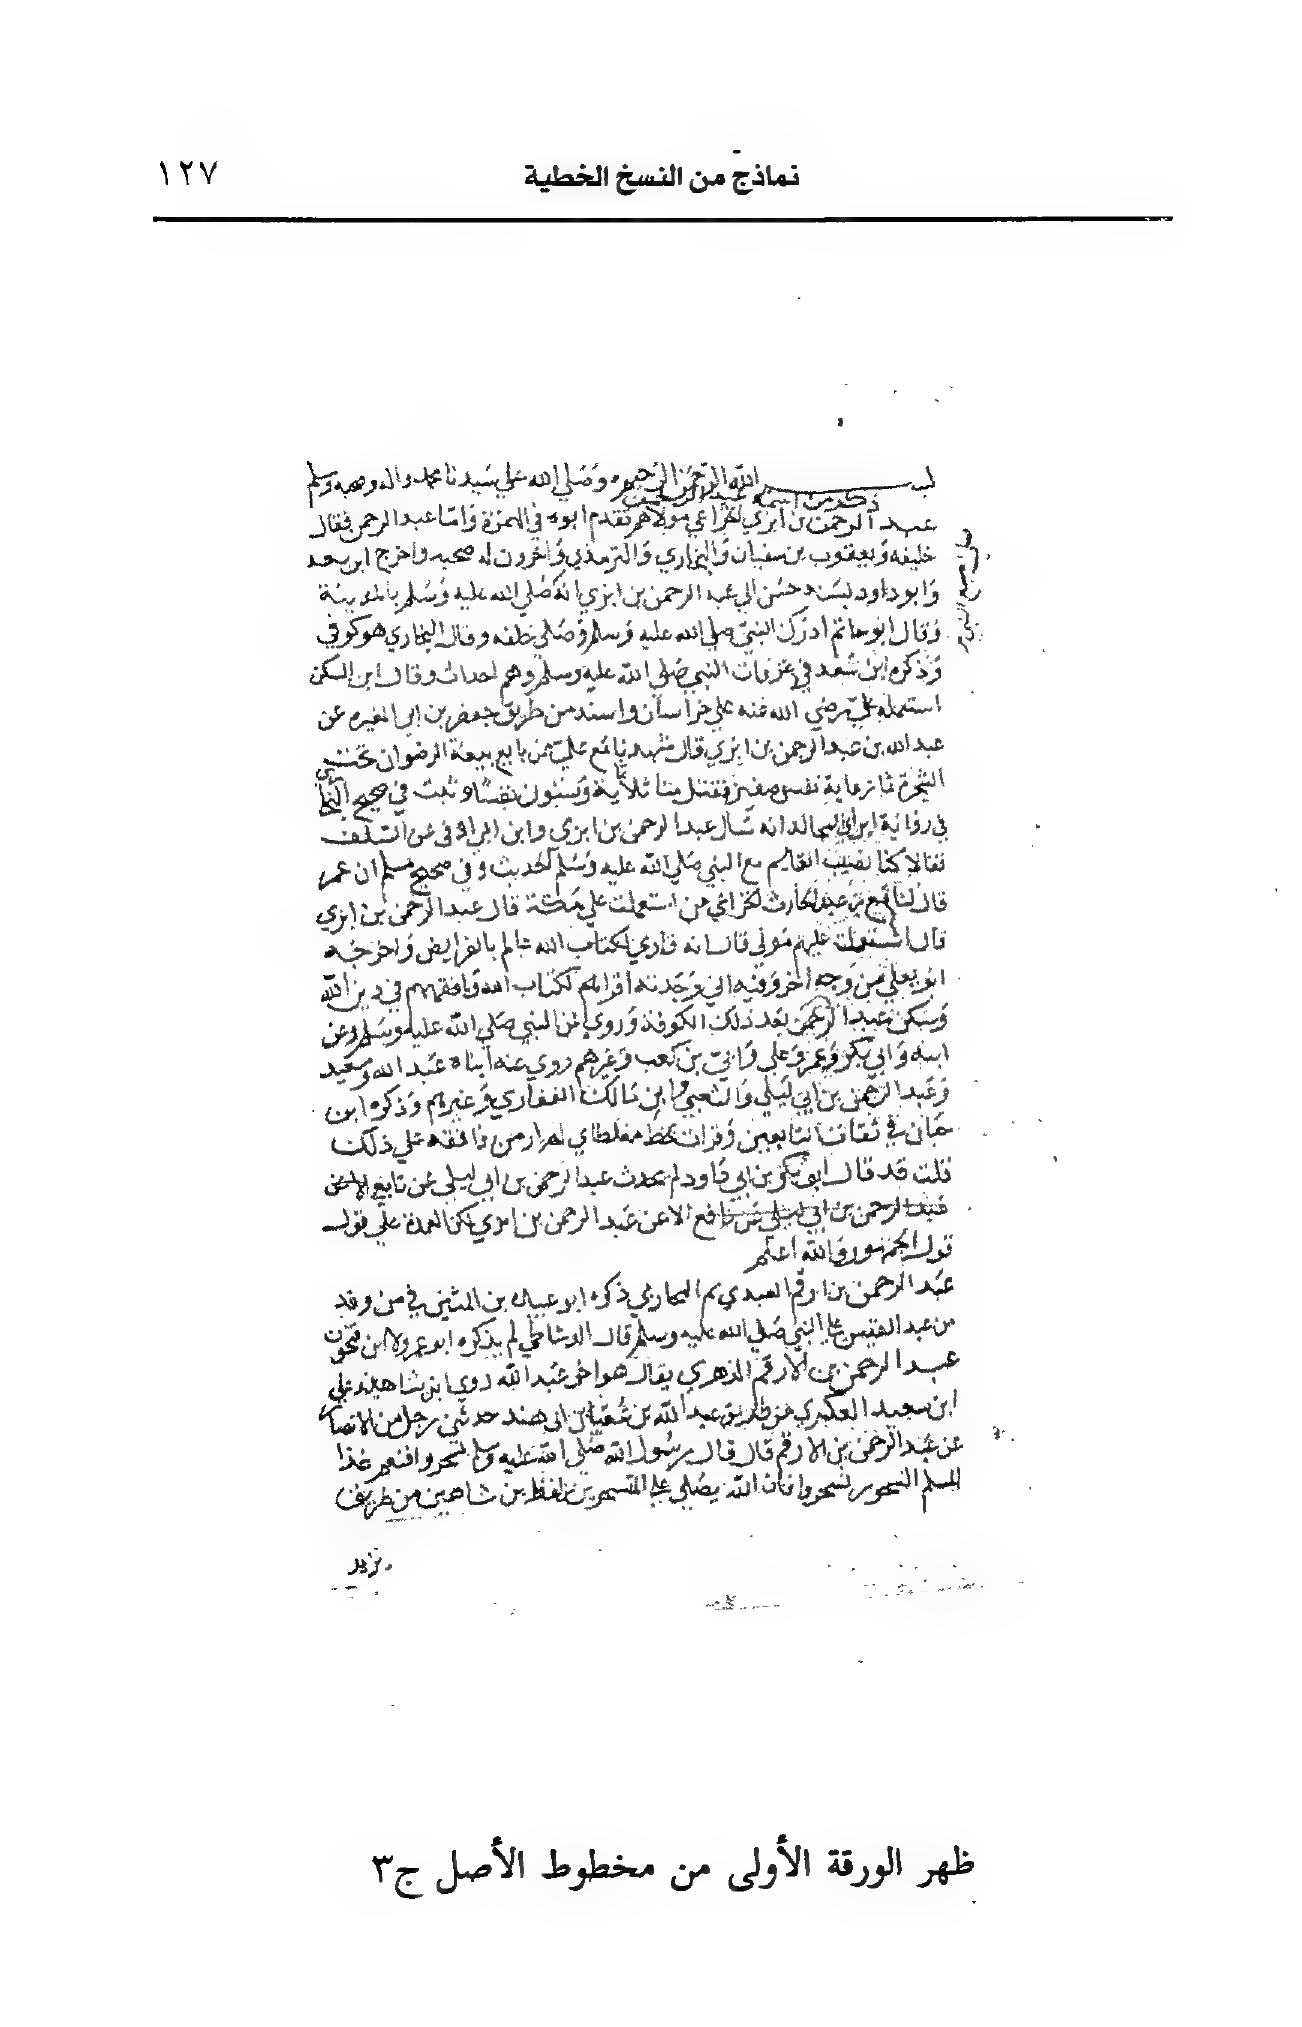 نماذج من النسخ الخطية
١٢٧
بسم الله الرحمن الرحيم وصلي الله علي سيدنا محمد واله وصحبه وسلم
ذكر من اسمه عبد الرحمن
عبد الرحمن بن ابزي الخزاعي مولاهم تقدم ابوه في الهمزة واما عبد الرحمن فقال
خليفه ويعقوب بن سفيان والبخاري والترمذي واخرون له صحبه واخرج ابن سعد
وابو داود بسند حسن الي عبد الرحمن بن ابزي انه صلي الله عليه وسلم بالمدينة
وقال ابو حاتم ادرك النبي صلي الله عليه وسلم وصلي خلفه وقال البخاري هو كوفي
وذكره ابن سعد في من مات النبي صلي الله عليه وسلم وهم احداث وقال ابن السكن
استعمله علي رضي الله عنه علي خراسان واسند من طريق جعفر بن ابي المغيره عن
عبد الله بن عبد الرحمن بن ابزي قال شهدنا مع علي ممن بايع بيعة الرضوان تحت
الشجرة ثمانماية نفس بصفين فقتل منا ثلاثماية وستون نفسا وثبت في صحيح البخاري
في رواية ابن ابي المجالد انه سال عبد الرحمن بن ابزي وابن ابي اوفي عن السلف
فقالا كنا نصيب المغانم مع النبي صلي الله عليه وسلم الحديث وفي صحيح مسلم ان عمر
قال لنافع بن عبد الحارث الخزاعي من استعملت علي مكة قال عبد الرحمن بن ابزي
قال استعملت عليهم مولي قال انه قاري لكتاب الله عالم بالفرايض واخرجه
ابو يعلي من وجه اخر وفيه اني وجدته اقراهم لكتاب الله وافقههم في دين الله
وسكن عبد الرحمن بعد ذلك الكوفة وروي عن النبي صلي الله عليه وسلم وعن
ابيه وابي بكر وعمر وعلي وابي بن كعب وغيرهم روي عنه ابناه عبد الله وسعيد
وعبد الرحمن بن ابي ليلي والشعبي وابن مالك الغفاري وغيرهم وذكره ابن
حبان في ثقات التابعين وقرات بخط مغلطاي لم ار من وافقه علي ذلك
قلت قد قال ابو بكر بن ابي داود لم يحدث عبد الرحمن بن ابي ليلي عن تابعي الا عن
عبد الرحمن بن ابي ليلي عن نافع الا عن عبد الرحمن بن ابزي لكن العمدة علي قول
قول الجمهور والله اعلم
عبد الرحمن بن ارقم العبدي ثم المحاربي ذكره ابو عبيده بن المثني في من وفد
من عبد القيس علي النبي صلي الله عليه وسلم قال الرشاطي لم يذكره ابو عمر ولا ابن فتحون
عبد الرحمن بن الارقم الزهري يقال هو اخو عبد الله روي ابن شاهين عن علي
ابن سعيد العكبري من طريق عبد الله بن سعيد بن ابي هند حدثني رجل من الانصار
عن عبد الرحمن بن الارقم قال قال رسول الله صلي الله عليه وسلم تسحروا فنعم غذا
المسلم السحور تسحروا فان الله يصلي علي المتسحرين لفظ بن شاهين من طريق
يزيد
ظهر الورقة الأولى من مخطوط الأصل ج٣